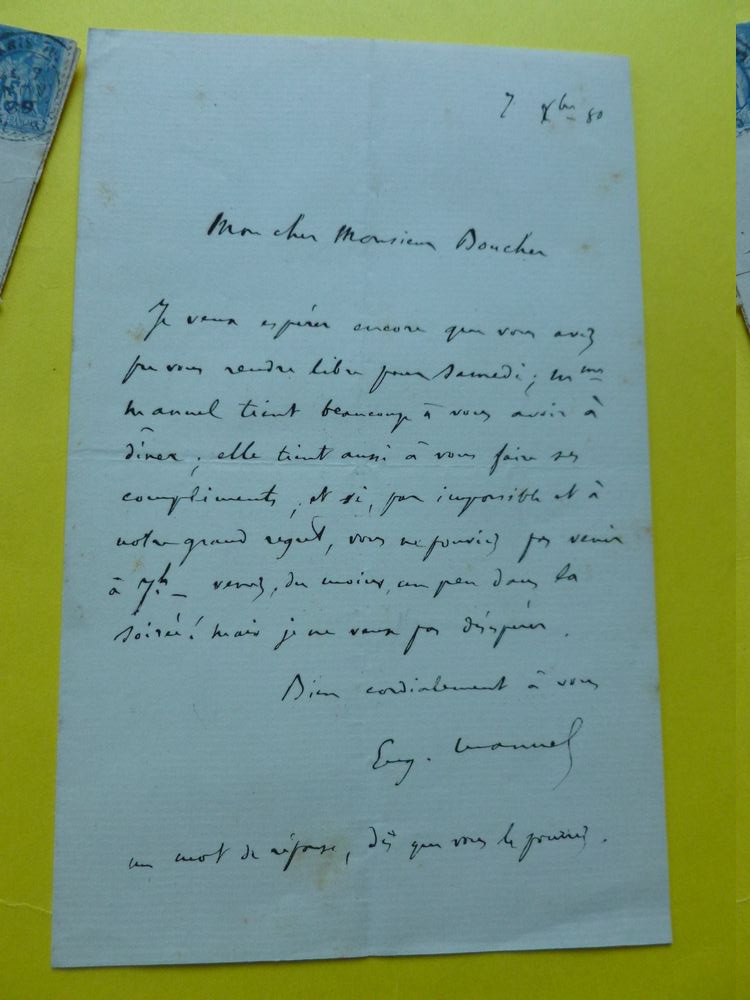 7 Xbre 80
Mon cher Monsieur Boucher
Je veux espérer encore que vous avez
pu vous rendre libre pour Samedi ; Mme
Manuel tient beaucoup à vous avoir à
dîner ; elle tient aussi à vous faire ses
compliments, et si, par impossible et à
notre grand regret, vous ne pouviez pas venir
à 7h. – venez, du moins, un peu dans la
soirée ! Mais je ne veux pas désespérer.
Bien cordialement à vous
Eug. Manuel
un mot de réponse, dès que vous le pourrez.
PARIS